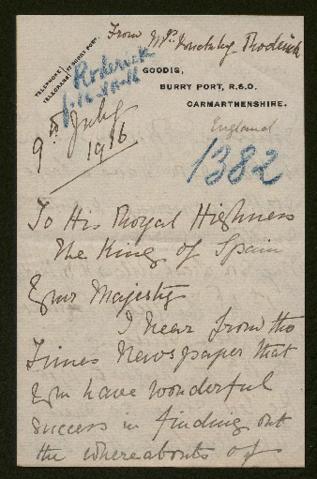 From Mrs Roderick
TELEPHONE
TELEGRAMS BURRY PORT.
Roderick
GOODIG,
BURRY PORT, R.S.O.
CARMARTHENSHIRE.
England
9th July
1916
1382
To His Royal Highness
The King of Spain
Your Majesty
I hear from the
Times Newspaper that
you have wonderful
success in finding out
the whereabouts of